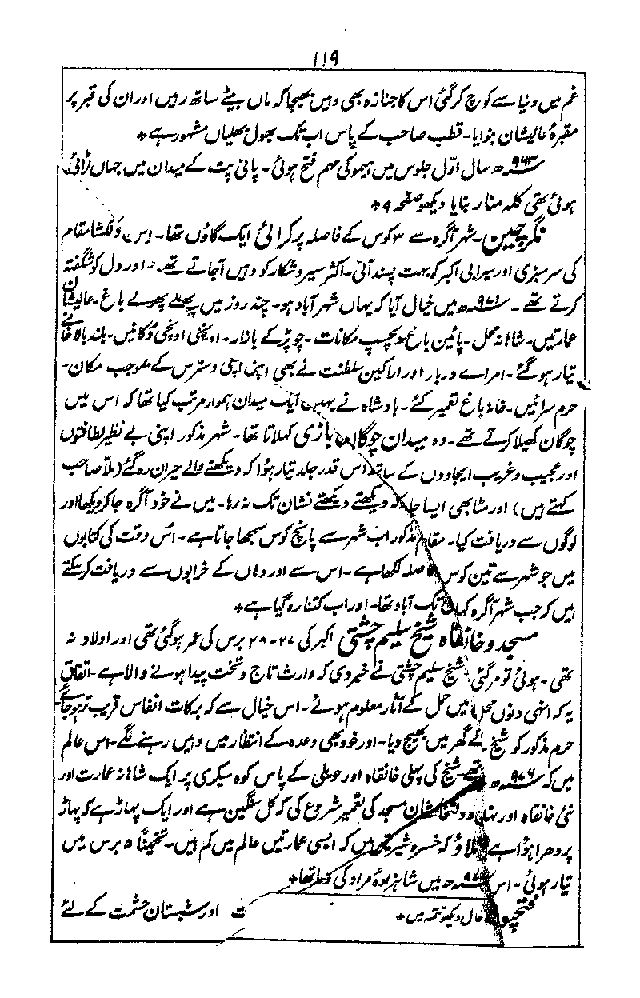 ۱۱۹
غم میں دنیا سے کوچ کر گئی اس کا جنازہ بھی وہیں بھیجا کہ ماں بیٹے ساتھ رہیں اور ان کی قبر پر
مقبرہ عالیشان بنوایا۔ قطب صاحب کے پاس اب تک بھول بھلیاں مشہور ہے +
۹۶۳ھ سال اول جلوس میں ہیمو کی مہم فتح ہوئی۔ پانی پت کے میدان میں جہاں لڑائی
ہوئی تھی کلہ منار بنایا دیکھو صفحہ ۹ +
نگر چین۔ شہر آگرہ سے ۳ کوس کے فاصلہ پر کرائی ایک گاؤں تھا۔ اس دلکشا مقام
کی سرسبزی اور سیرابی اکبر کو بہت پسند آئی۔ اکثر سیر و شکار کو وہیں آجاتے تھے۔ اور دل کو شگفتہ
کرتے تھے۔ میں خیال آیا کہ یہاں شہر آباد ہو۔ چند روز میں پھلے پھولے باغ۔ عالیشان
عمارتیں۔ شاہانہ محل۔ پائیں باغ دلچسپ مکانات۔ چوپڑ کے بازار۔ اونچی اونچی دکانیں۔ بلند بالاخانے
تیار ہو گئے۔ امرائے دربار اور اراکین سلطنت نے بھی اپنی اپنی دسترس کے بموجب مکان۔
حرم سرائیں۔ خانہ باغ تعمیر کئے۔ بادشاہ نے یہیں ایک میدان ہموار مرتب کیا تھا کہ اس میں
چوگان کھیلا کرتے تھے۔ وہ میدان چوگان بازی کہلاتا تھا۔ شہر مذکور اپنی بے نظیر لطافتوں
اور عجیب و غریب ایجادوں کے ساتھ اس قدر جلد تیار ہوا کہ دیکھنے والے حیران رہ گئے (ملا صاحب
کہتے ہیں) اور مٹا بھی ایسا جلد کہ دیکھتے دیکھتے نشان تک نہ رہا۔ میں نے خود آگرہ جا کر دیکھا اور
لوگوں سے دریافت کیا۔ مقام مذکور اب شہر سے پانچ کوس سمجھا جاتا ہے۔ اس وقت کی کتابوں
میں جو شہر سے تین کوس فاصلہ لکھا ہے۔ اس سے اور وہاں کے خرابوں سے دریافت کر سکتے
ہیں کہ جب شہر آگرہ کہاں تک آباد تھا۔ اور اب کتنا رہ گیا ہے +
مسجد و خانقاہ شیخ سلیم چشتی اکبر کی ۲۷۔ ۲۸ برس کی عمر ہو گئی تھی اور اولاد نہ
تھی۔ ہوئی تو مر گئی شیخ سلیم چشتی نے خبر دی کہ وارث تاج و تخت پیدا ہونے والا ہے۔ اتفاق
یہ کہ انہی دنوں محل میں حمل کے آثار معلوم ہوئے۔ اس خیال سے کہ برکات انفاس قریب تر ہو جائے
حرم مذکور کو شیخ کے گھر میں بھیج دیا۔ اور خود بھی وعدہ کے انتظار میں وہیں رہنے لگے۔ اس عالم
میں کہ تھے شیخ کی پہلی خانقاہ اور حویلی کے پاس کوہ سیکری پر ایک شاہانہ عمارت اور
نئی خانقاہ اور عالیشان مسجد کی تعمیر شروع کی کہ کل سنگین ہے اور ایک پہاڑ ہے کہ پہاڑ
پر دھرا ہوا ہے کہ ایسی عمارتیں عالم میں کم ہیں۔ تخمیناً ۵ برس میں
تیار ہوئی۔ میں شاہزادہ مراد
فتحپور حال دیکھو تتمہ میں + اور شبستان حشمت کے لئے